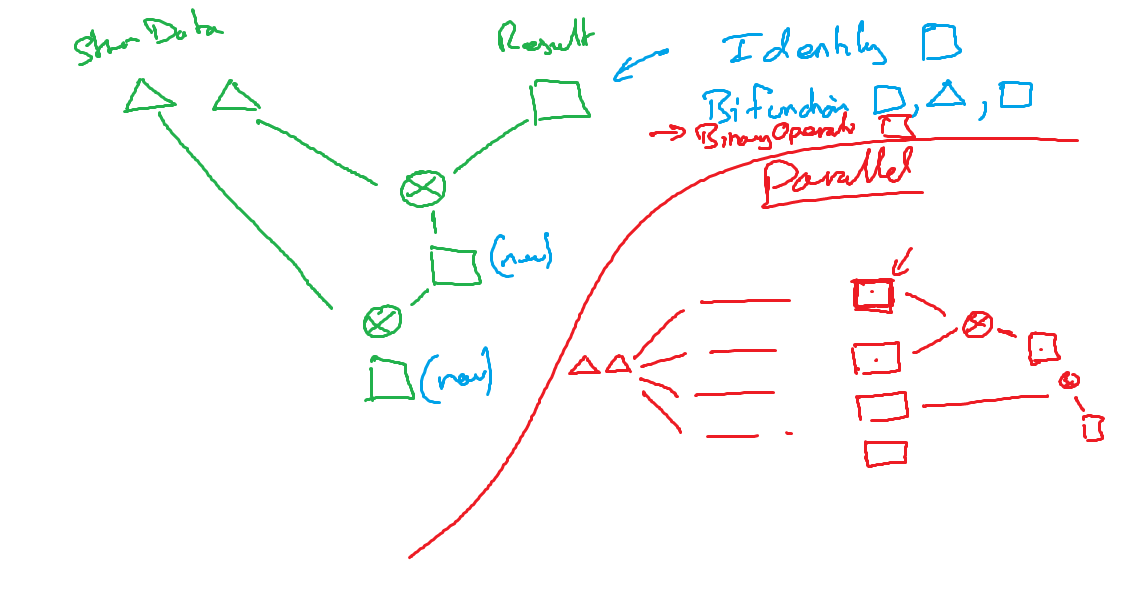 Strm Data
Result
Identity
Bifunction , ,
BinaryOperato
Parallel
(new)
(new)